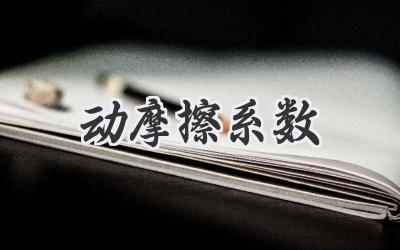 动摩擦系数